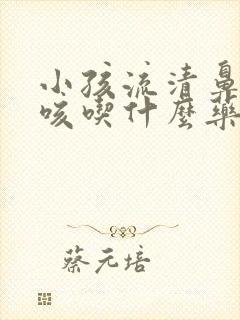 小孩流清鼻
咳喫什麼藥
蔡元培